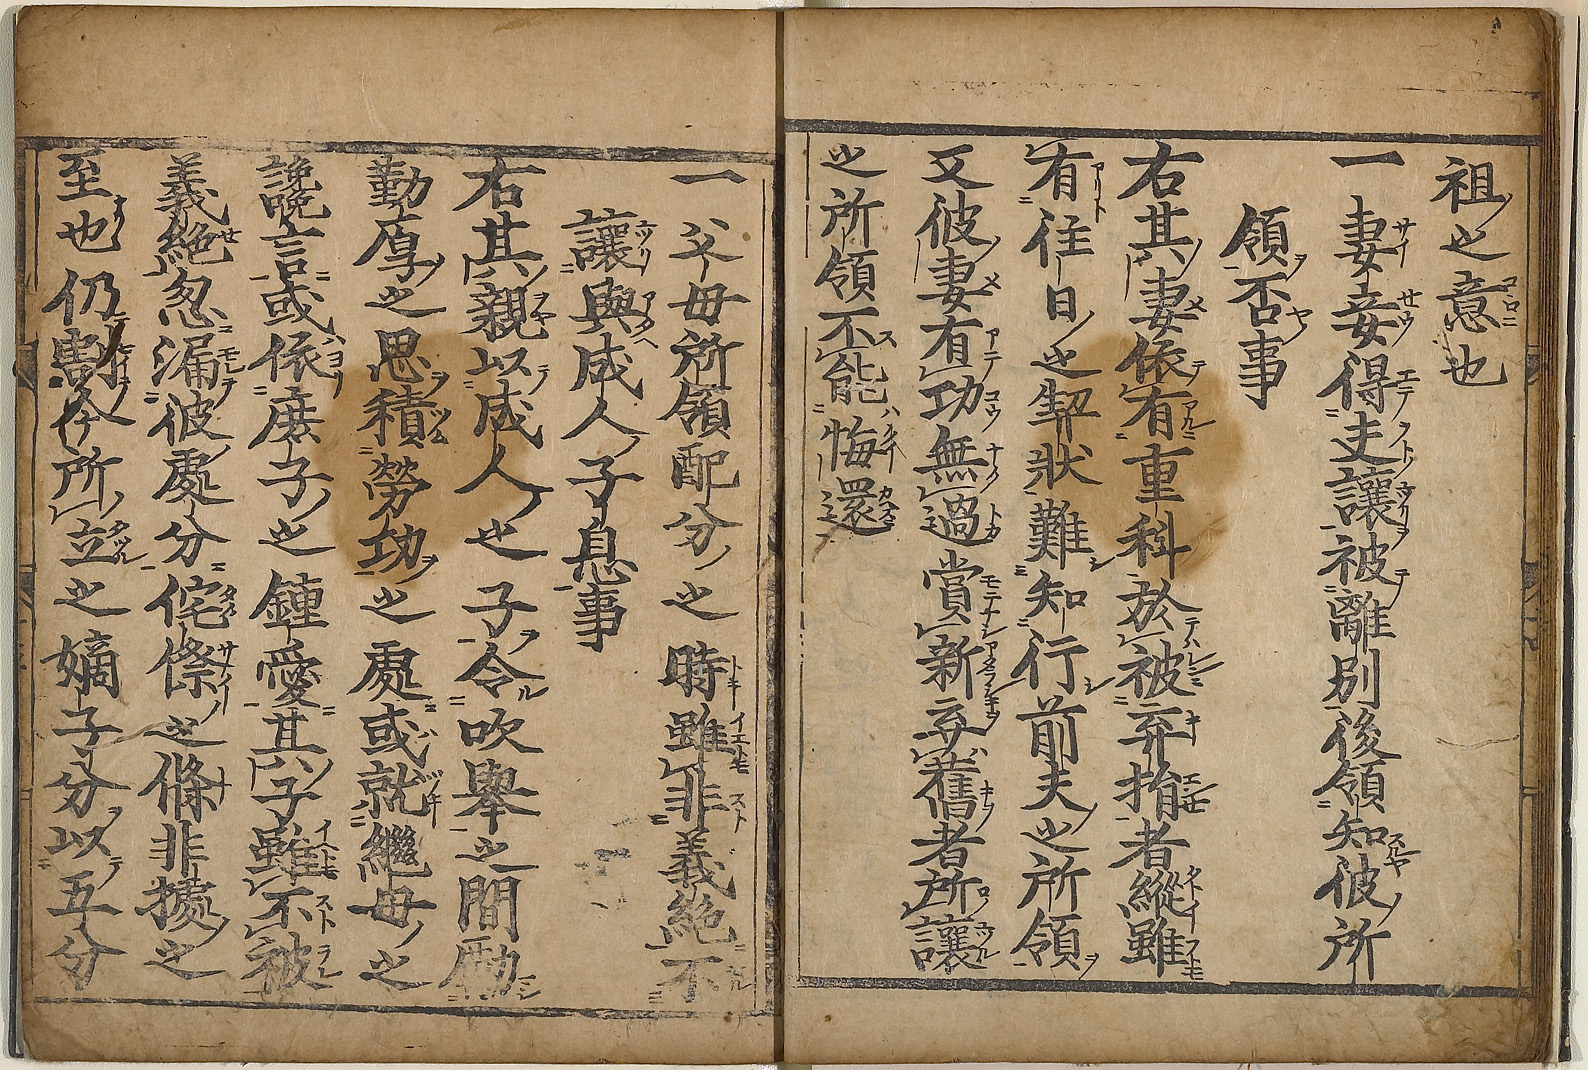 祖之意也
一妻妾得夫讓被離別後領知彼所
領否事
右其妻依有重科於被弃捐者縱雖
有往日之契狀難知行前夫之所領
又彼妻有功無過賞新弃舊者所讓
之所領不能悔還
一父母所領配分之時雖非義絶不
讓與成人子息事
右其親以成人之子令吹擧之間勵
勤厚之思積勞功之處或就繼母之
讒言或依庶子之鍾愛其子雖不被
義絶忽漏彼處分侘傺之條非據之
至也仍割今所立之嫡子分以五分